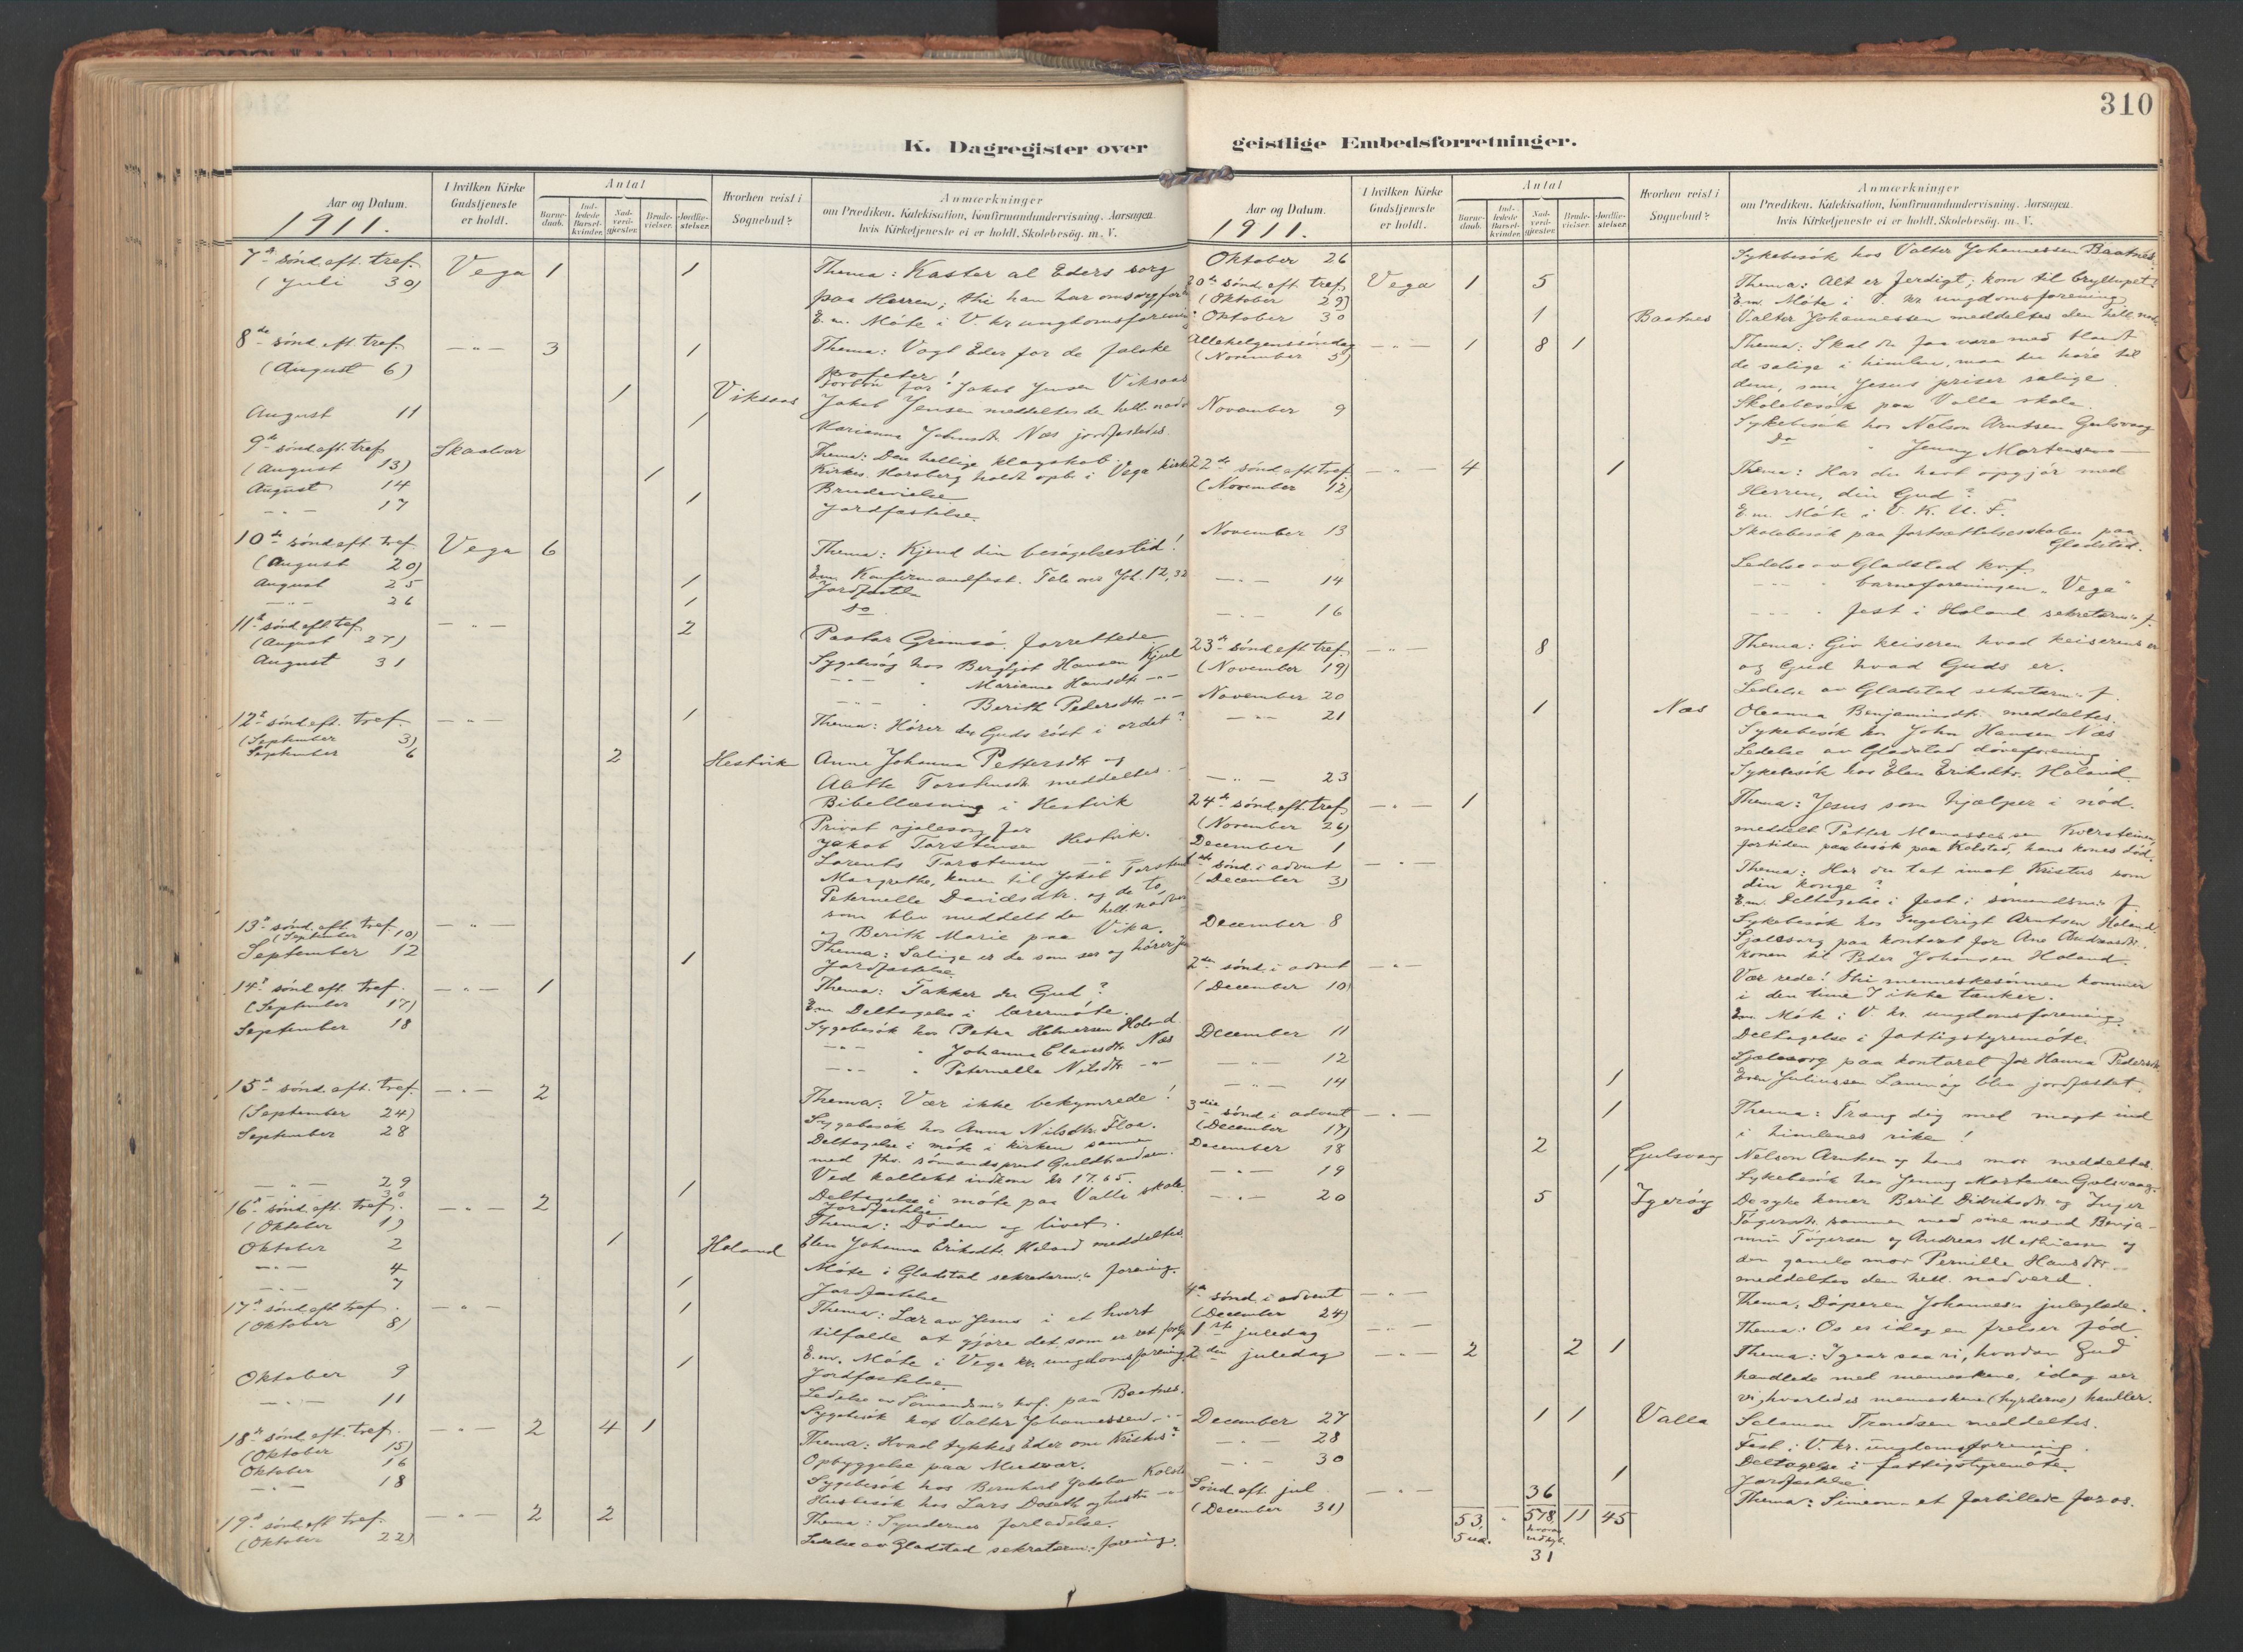 310
K. Dagregister over geistlige Embedsforretninger.
Aar og Datum.
1911.
I hvilken Kirke Gudstjeneste er holdt.
Antal
Barne-daab.
Ind-ledede Barsel-kvinder.
Nad-verd-gjæster.
Brude-vielser.
Jordfæ-stelser.
Hvorhen reist i Sognebud?
Anmærkninger
om Prædiken, Katekisation, Konfirmandundervisning. Aarsagen
hvis Kirketjeneste ei er holdt, Skolebesøg. m. V.
7de sønd. eft. tref. Vega 1 1 Thema: Kaster al Eders sorg
(Juli 30) paa Herren; thi han har omsorg for
E.m. Møte i V. kr ungdomsforening
8de sønd. eft. tref. —"— 3 1 Thema: Vogt Eder for de falske
(August 6) profeter!
Forbøn for Jakob Jensen Viksaas
1 Viksaas Jakob Jensen meddeltes den hell. nadv
August 11 1 Marianna Johnsdtr. Næs jordfæstedes.
9de sønd. eft. tref. Skaalvær Thema: Den hellige
(August 13) Kirkes. Horsberg holdt opb. i Vega kirke
August 14 1 Brudevielse
—"— 17 1 Jordfæstelse.
10de sønd. eft. tref. Vega 6 Thema: Kjend din besøgelsestid!
(August 20) E.m. Konfirmandfest. Tale over Joh. 12,32
August 25 1 Jordfæstelse
—"— 26 1 do
11te sønd. eft. tref. —"— 2 Pastor Grimsø forrettede
(August 27)
August 31 Sygebesøg hos Bergljot Hansen Kjul
—"— " Marianne Hansdtr —"—
—"— " Berith Pedersdtr. —"—
12te sønd. eft. tref. —"— 1 Thema: Hører du Guds røst i ordet?
(September 3)
September 6 2 Hestvik Anne Johanna Pettersdtr og
Alette Torstensdtr. meddeltes.
Bibellæsning i Hestvik
Privat sjælesorg for
Jakob Torstensen Hestvik.
Lorents Torstensen —"—
Margrethe, konen til Jakob Torstens
Peternelle Davidsdtr. og de to,
som blev meddelt den hell. nadver
og Berith Marie paa Vika.
13de sønd. eft. tref. —"— Thema: Salige er de som ser og hører
(September 10)
September 12 1 Jordfæstelse.
14de sønd. eft. tref. —"— 1 Thema: Takker du Gud?
(September 17) E.m. Deltagelse i lærermøte.
September 18 Sygebesøk hos Petra Helmersen Holand
—"— " Johanna Elevesdtr. Næs
—"— " Peternelle Nilsdtr. —"—
15de sønd. eft. tref. —"— 2 Thema: Vær ikke bekymrede!
(September 24)
September 28 Sygebesøk hos Anna Nilsdtr. Floa.
Deltagelse i møte i kirken sammen
med fhv. sømandsprest Guldbrandsen.
Ved kollekt indkom kr 17.65.
—"— 29 Deltagelse i møte paa Valla skole.
—"— 30 1 Jordfæstelse
16de sønd. eft. tref. —"— 2 Thema: Døden og livet.
(Oktober 1)
Oktober 2 1 Holand Elen Johanna Eriksdtr. Holand meddeltes.
—"— 4 Møte i Gladstad sekretærm.s forening.
—"— 7 1 Jordfæstelse
17de sønd. eft. tref. —"— 1 Thema: Lær av Jesus i et hvert
(Oktober 8) tilfælde at gjøre det, som er ret
E.m. Møte i Vega kr. ungdomsforening
Oktober 9 1 Jordfæstelse
—"— 11 Ledelse av Sømandsm.s kvf. paa Baatnes.
Sygebesøk hos Valter Johannessen —"—
18de sønd. eft. tref. —"— 2 4 1 Thema: Hvad tykkes Eder om Kristus?
(Oktober 15)
Oktober 16 Opbyggelse paa Mudvær.
—"— 18 Sygebesøk hos Bernhard Jakobsen
Husbesøk hos Lars Doseth og hustru —"—
19de sønd. eft. tref. —"— 2 2 Thema: Syndernes forladelse.
(Oktober 22) Ledelse av Gladstad sekretærm.s forening.
Aar og Datum.
1911.
I hvilken Kirke Gudstjeneste er holdt.
Antal
Barne-daab.
Ind-ledede Barsel-kvinder.
Nad-verd-gjæster.
Brude-vielser.
Jordfæ-stelser.
Hvorhen reist i Sognebud?
Anmærkninger
om Prædiken, Katekisation, Konfirmandundervisning. Aarsagen
hvis Kirketjeneste ei er holdt, Skolebesøg. m. V.
Oktober 26 Sykebesøk hos Valter Johannessen Baatnes.
20de sønd. eft. tref. Vega 1 5 Thema: Alt er ferdigt; kom til bryllupet!
(Oktober 29) E.m. Møte i V. kr ungdomsforening
Oktober 30 1 Baatnes Valter Johannessen meddeltes den hell. nadv.
Allehelgenssøndag —"— 1 8 1 Thema: Skal du faa være med blandt
(November 5) de salige i himlen, maa du høre til
dem, som Jesus priser salige.
November 9 Skolebesøk paa Valla skole.
Sykebesøk hos Nelson Arntsen Gulsvaag
do " Jenny Mortensen —
22de sønd. eft. tref. —"— 4 1 Thema: Har du havt opgjør med
(November 12) Herren, din Gud?
E.m. Møte i V. K. U. F.
November 13 Skolebesøk paa fortsættelsesskolen paa Gladstad.
—"— 14 Ledelse av Gladstad kv.f.
—"— " barneforeningen "Vega"
—"— 16 —"— " fest i Holand sekretærm.s f.
23de sønd. eft. tref. —"— 8 Thema: Giv keiseren hvad keiserens er
(November 19) og Gud hvad Guds er.
November 20 Ledelse av Gladstad sekretærm.s f.
—"— 21 1 Næs Oleanna Benjaminsdtr. meddeltes.
Sykebesøk hos John Hansen Næs
Ledelse av Gladstad døveforening
—"— 23 Sykebesøk hos Elen Eriksdtr. Holand.
24de sønd. eft. tref. —"— 1 Thema: Jesus som hjælper i nød.
(November 26)
December 1 meddelt Petter Manassessen
fortiden paa besøk paa Kolstad, hans kones død.
1ste sønd. i advent —"— Thema: Har du tat imot Kristus som
(December 3) din konge?
E.m. Deltagelse i fest i sømandsm.s f.
December 8 Sykebesøk hos Ingebrigt Arntsen Holand.
Sjælesorg paa kontoret for Ane Andreasdtr.
konen til Peder Johansen Holand.
2den sønd. i advent —"— Vær rede! thi menneskesønnen kommer
(December 10) i den time I ikke tænker.
E.m. Møte i V. kr. ungdomsforening.
December 11 Deltagelse i fattigstyremøte.
—"— 12 Sjælesorg paa kontoret for Hanna Pedersdtr.
—"— 14 1 Even Juliussen blev jordfæstet.
3die sønd. i advent —"— 1 Thema: Træng dig med magt ind
(December 17) i himlenes rike!
December 18 2 Gulsvaag Nelson Arntsen og hans mor meddeltes.
—"— 19 1 Sykebesøk hos Jenny Mortensen Gulsvaag.
—"— 20 5 Igerøy De syke koner Berit Didriksdtr. og Inger
sammen med sine mænd Benja-
min Tøgersen og Andreas Mathiasen og
den gamle mor Pernille Hansdtr.
meddeltes den hell. nadverd.
4de sønd. i advent —"— Thema: Døperen Johannes's juleglæde.
(December 24)
1ste juledag —"— Thema: Os er idag en frelser fød.
2den juledag —"— 2 2 1 Thema: Igaar saa vi, hvordan Gud
handlede med menneskene, idag ser
vi, hvorledes menneskene (hyrderne) handler.
December 27 1 1 Valla Salamon Trondsen meddeltes.
—"— 28 Fest i V. kr. ungdomsforening.
—"— 30 Deltagelse i fattigstyremøte.
1 Jordfæstelse
Sønd. eft. jul —"— 36 Thema: Simeon — et forbillede for os.
(December 31) 53, - 578, 11 45
5 uæ. hvorav
31